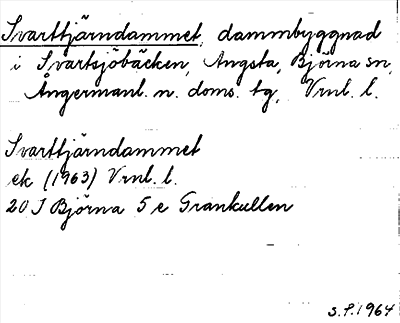 Svarttjärndammet, dammbyggnad
i Svartsjöbäcken, Angsta, Björna sn,
Ångermanl. n. doms. tg, Vrnl. l.
Svarttjärndammet
ek (1963) Vrnl. l.
20 J Björna 5 e Grankullen
S.F. 1964